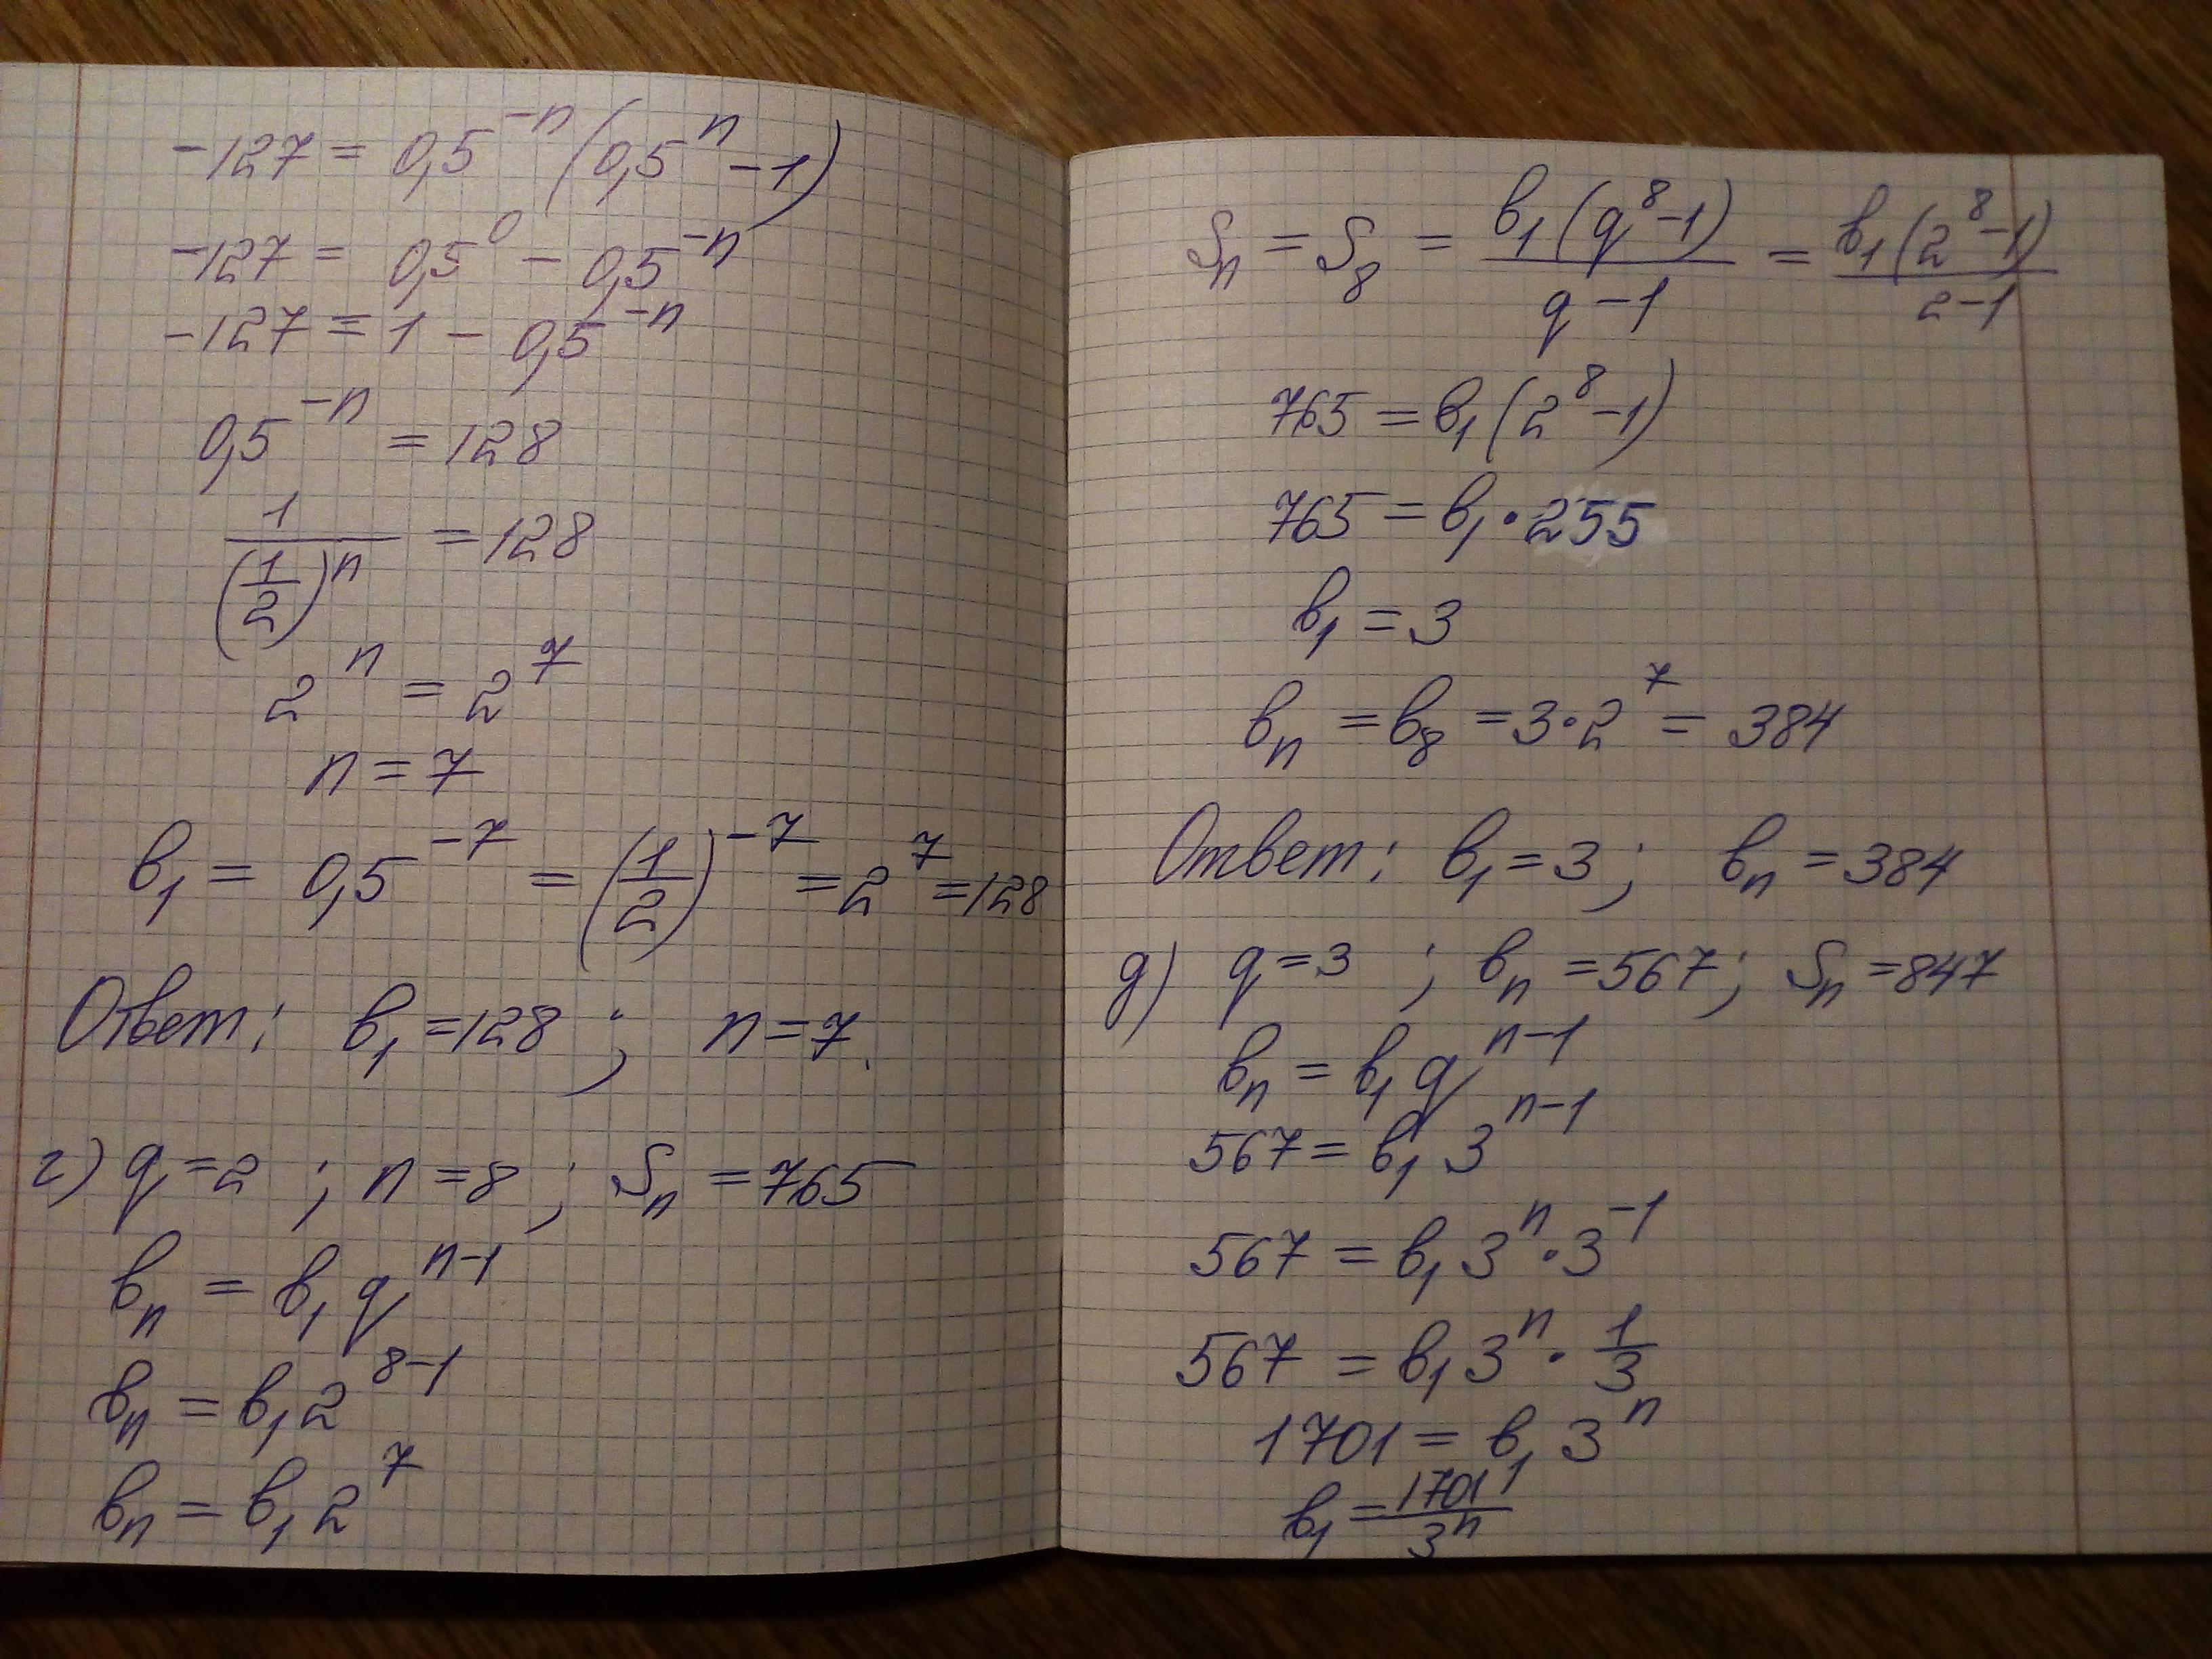 -127 = 0,5^{-n} (0,5^n - 1)
-127 = 0,5^0 - 0,5^{-n}
-127 = 1 - 0,5^{-n}
0,5^{-n} = 128
\frac{1}{(\frac{1}{2})^n} = 128
2^n = 2^7
n = 7
b_1 = 0,5^{-7} = (\frac{1}{2})^{-7} = 2^7 = 128
Ответ: b_1 = 128 ; n = 7.
г) q = 2 ; n = 8 ; S_n = 765
b_n = b_1 q^{n-1}
b_n = b_1 2^{8-1}
b_n = b_1 2^7
S_n = S_8 = \frac{b_1 (q^8 - 1)}{q - 1} = \frac{b_1 (2^8 - 1)}{2 - 1}
765 = b_1 (2^8 - 1)
765 = b_1 · 255
b_1 = 3
b_n = b_8 = 3 · 2^7 = 384
Ответ: b_1 = 3 ; b_n = 384
д) q = 3 ; b_n = 567 ; S_n = 847
b_n = b_1 q^{n-1}
567 = b_1 3^{n-1}
567 = b_1 3^n · 3^{-1}
567 = b_1 3^n · \frac{1}{3}
1701 = b_1 3^n
b_1 = \frac{1701}{3^n}